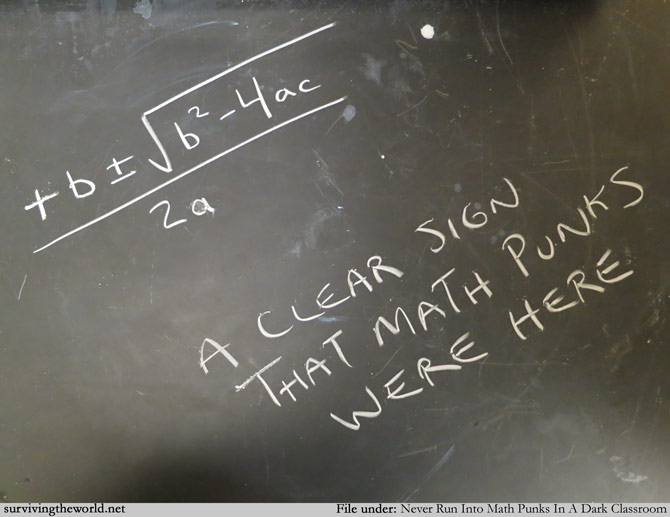 +b ± √(b² - 4ac)
2a
A CLEAR SIGN
THAT MATH PUNKS
WERE HERE
survivingtheworld.net
File under: Never Run Into Math Punks In A Dark Classroom